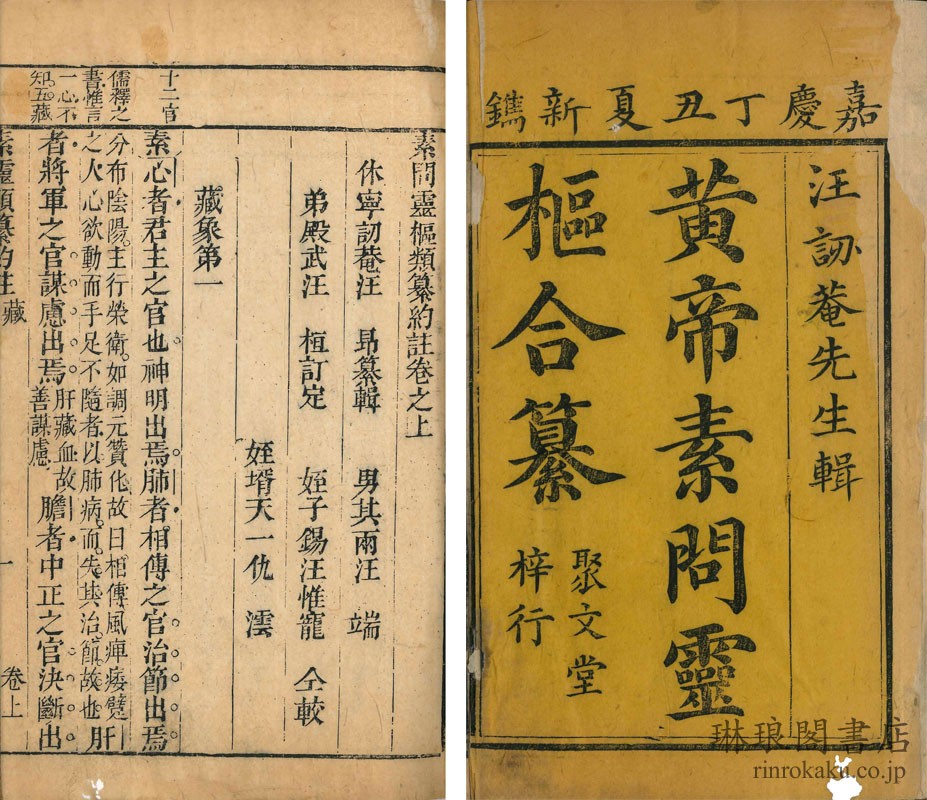 嘉慶丁丑夏新鐫
汪訒菴先生輯
黃帝素問靈
樞合纂
聚文堂
梓行
琳琅閣書店
rinrokaku.co.jp
素問靈樞類纂約註卷之上
休寧訒菴汪 昻纂輯 男其兩汪 端
弟殿武汪 桓訂定 姪子錫汪惟寵 仝較
姪壻天一仇 澐
藏象第一
素心者君主之官也神明出焉肺者相傳之官治節出焉
分布陰陽主行榮衛如調元贊化故曰相傳風痺痿躄肝
之人心欲動而手足不隨者以肺病而失其治節故也肝
者將軍之官謀慮出焉肝藏血故善謀慮膽者中正之官決斷出
十二官
儒釋之
書惟言
一心不
知五藏
素靈類纂約註 藏 一 卷上